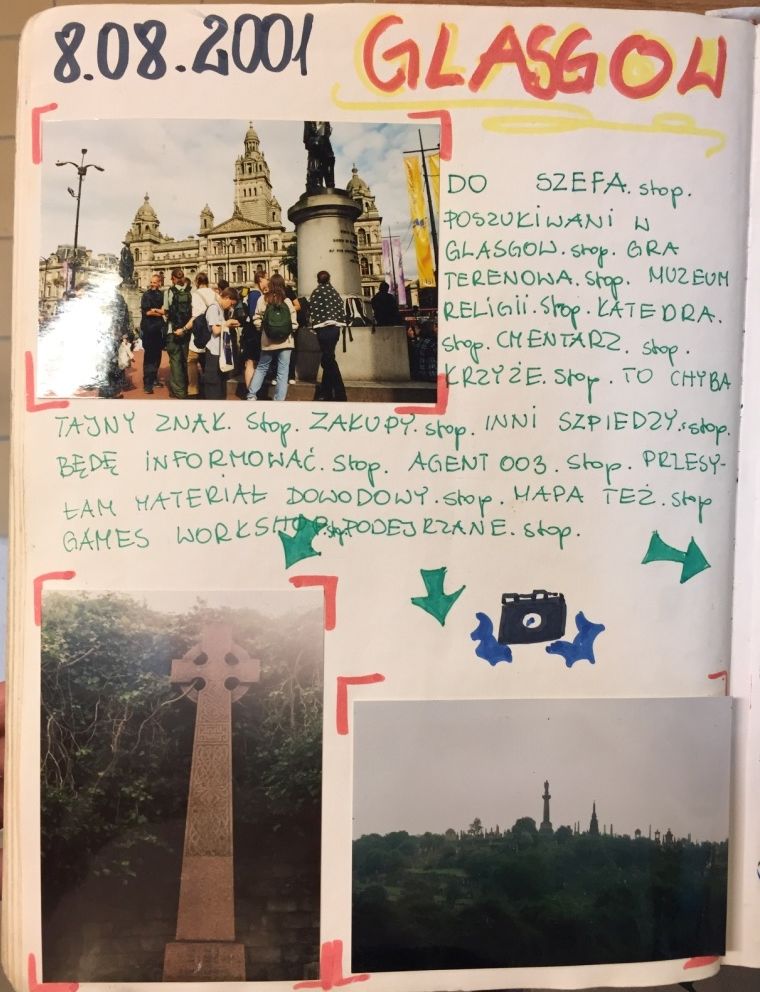 8.08.2001 GLASGOW
DO SZEFA. stop.
POSZUKIWANI W
GLASGOW. stop. GRA
TERENOWA. stop. MUZEUM
RELIGII. stop. KATEDRA.
stop. CMENTARZ. stop.
KRZYŻE. stop. TO CHYBA
TAJNY ZNAK. stop. ZAKUPY. stop. INNI SZPIEDZY. stop.
BĘDĘ INFORMOWAĆ. stop. AGENT 003. stop. PRZESY-
ŁAM MATERIAŁ DOWODOWY. stop. MAPA TEŻ. stop
GAMES WORKSHOP. stop. PODEJRZANE. stop.